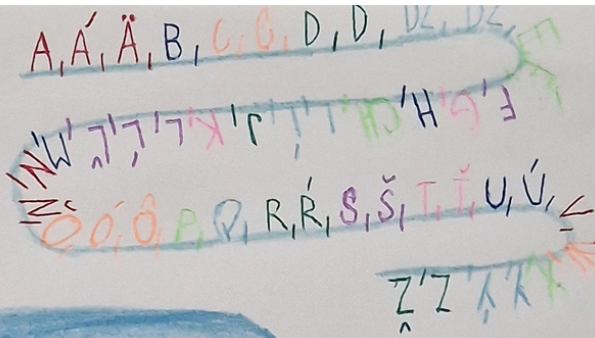 A, Á, Ä, B, C, Č, D, Ď, DZ, DŽ,
E, É,
F, G, H, CH, I, Í, J, K, L, Ĺ, Ľ, M,
N, Ň
O, Ó, Ô, P, Q, R, Ŕ, S, Š, T, Ť, U, Ú,
V, W,
X, Y, Ý, Z, Ž